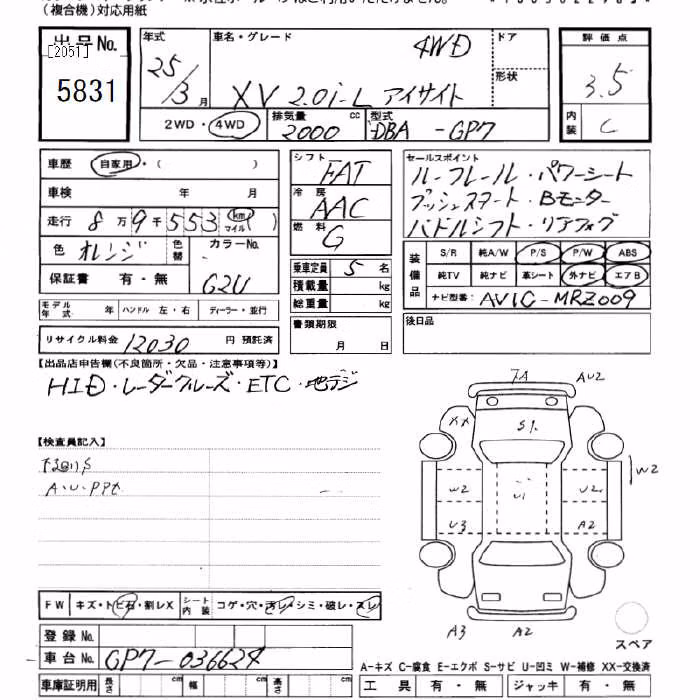 (複合機)対応用紙
出品No. [2051] 5831
年式 25/3月
車名・グレード 4WD
XV 2.0i-L アイサイト
ドア
形状
評価点 3.5
内装 C
2WD・4WD 排気量 2000 cc 型式 DBA-GP7
車歴 自家用・( )
車検 年 月
走行 8万9千553 km マイル ( )
色 オレンジ 色替 カラーNo. G2U
保証書 有・無
モデル年式 年 ハンドル 左・右 ディーラー・並行
リサイクル料金 12030 円 預託済
シフト FAT
冷房 AAC
燃料 G
乗車定員 5 名
積載量 kg
総重量 kg
書類期限 月 日
セールスポイント
ルーフレール・パワーシート
プッシュスタート・Bモニター
パドルシフト・リアフォグ
装備品 S/R 純A/W P/S P/W ABS
純TV 純ナビ 革シート 外ナビ エアB
ナビ型番: AVIC-MRZ009
後日品
【出品店申告欄(不良箇所・欠品・注意事項等)】
HID・レーダークルーズ・ETC・地デジ
【検査員記入】
A・U・PPt
FW キズ・トビ石・割レX シート内装 コゲ・穴・汚レ・シミ・破レ・スレ
登録No.
車台No. GP7-036624
車庫証明用 長さ cm 幅 cm 高さ cm
AU2
XX
S1.
W2
W2
U2
U1
U3
A2
A3
A2
スペア
A-キズ C-腐食 E-エクボ S-サビ U-凹ミ W-補修 XX-交換済
工具 有・無 ジャッキ 有・無